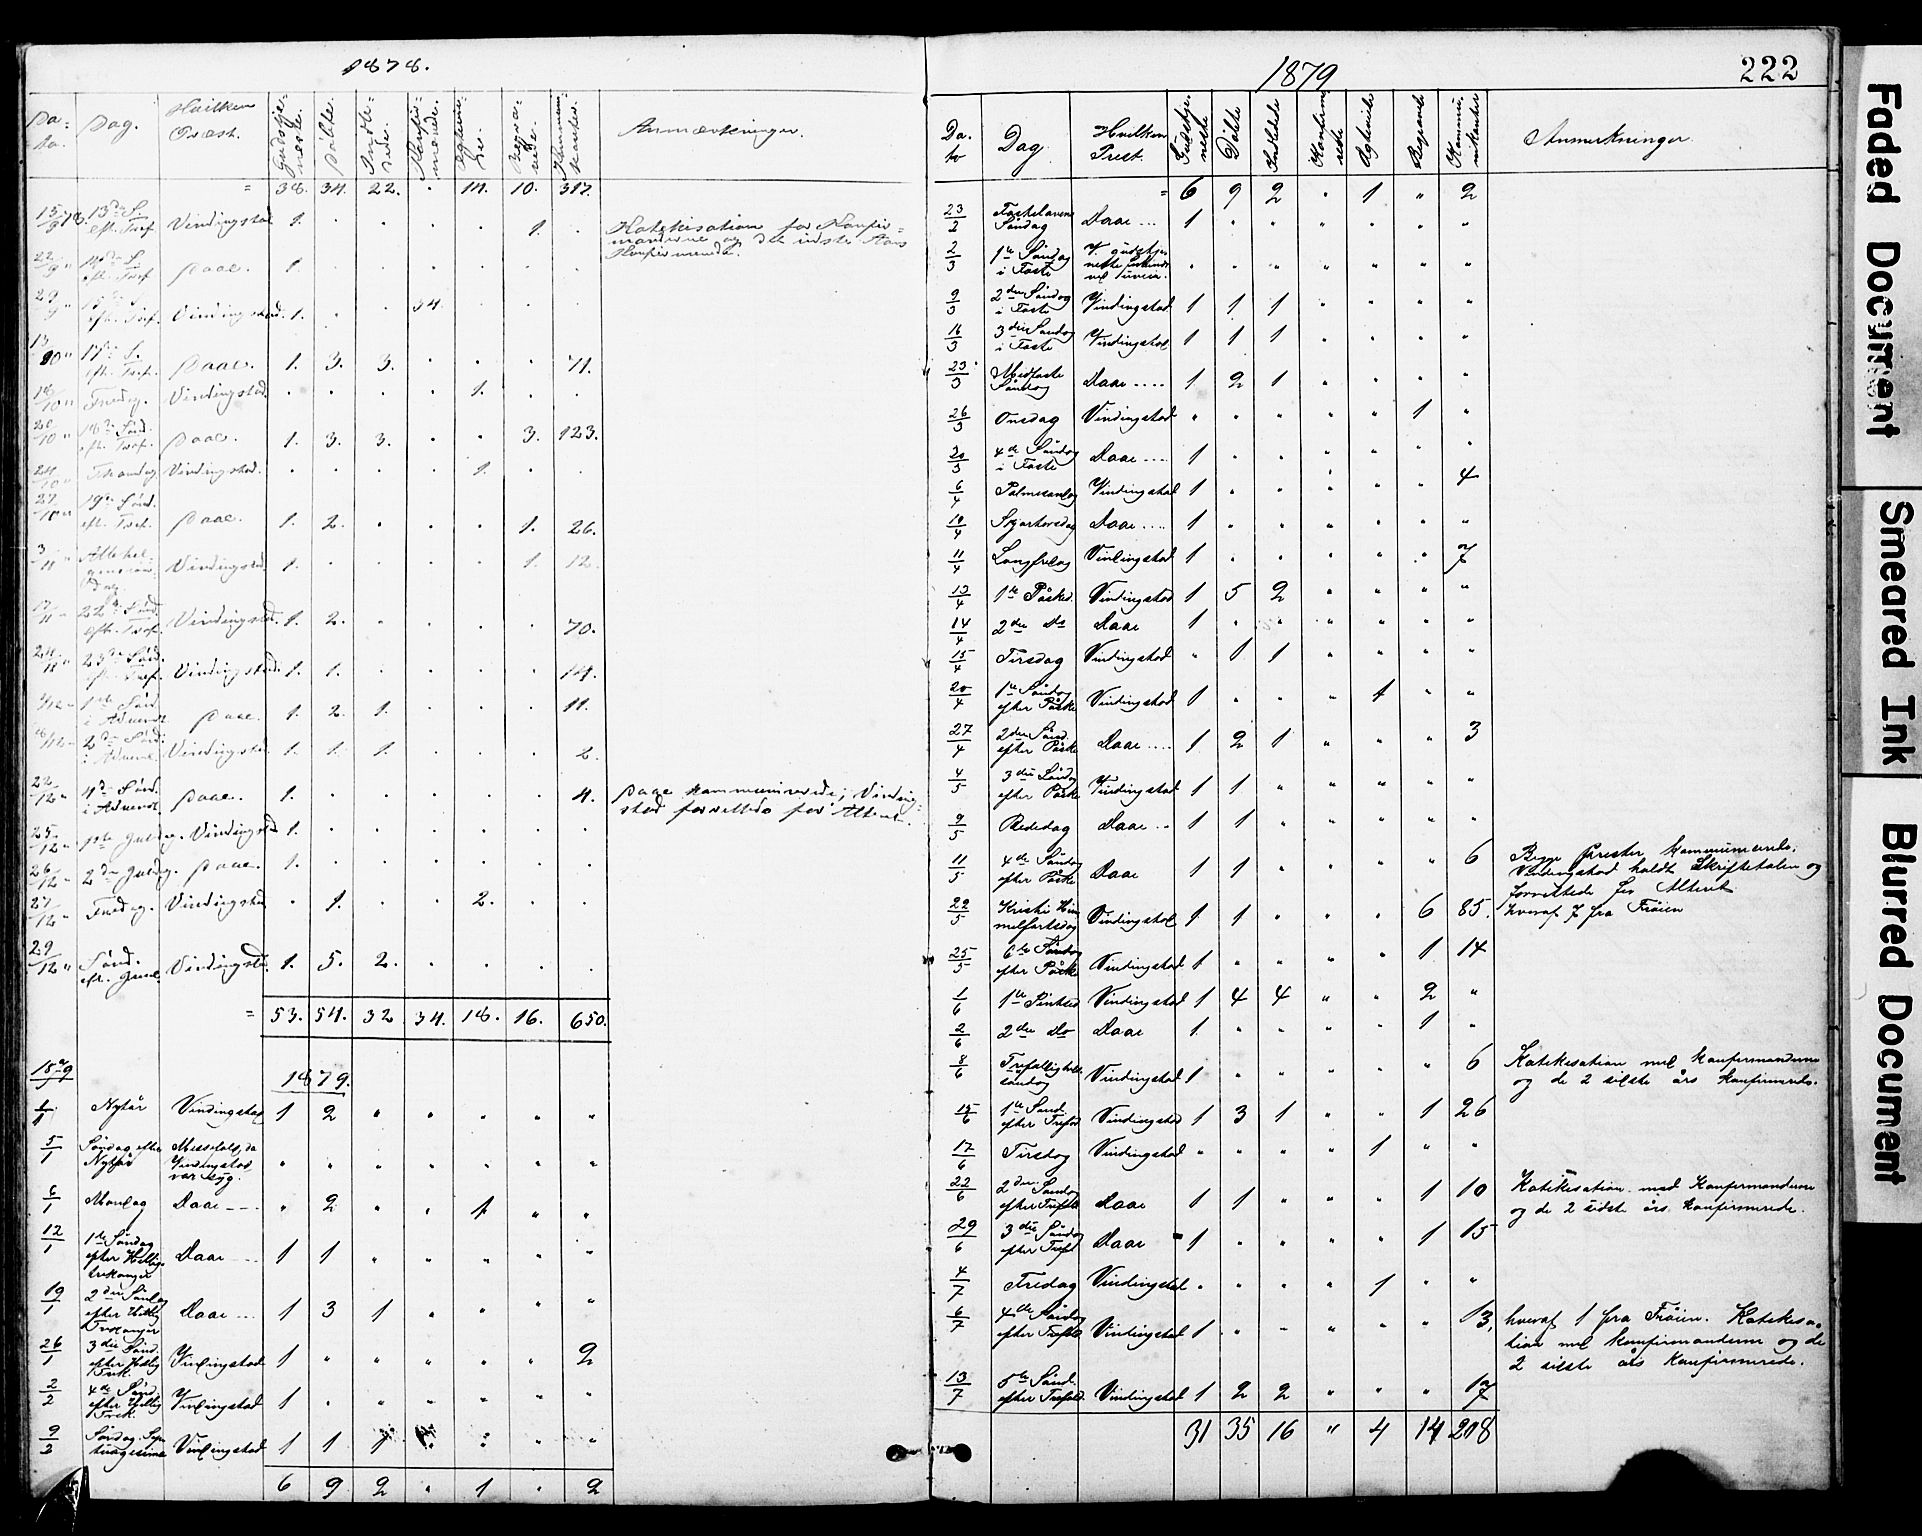 1878.
Da-to. Dag. Hvilken Præst. Gudstje-neste. Døbte. Indle-dede. Konfir-merede. Ægtevi-ede. Begra-vede. Kommuni-kanter. Anmærkninger.
= 38. 34. 22. " 14. 10. 317.
15/9 78 13de S. eft. Tref. Vindingstad 1. . . . . 1. . Katekisation for Konfir-
manderne og det sidste Aars
Konfirmerede.
22/9 " 14de S. eft. Tref. Daae. 1. . . . . . .
29/9 " 15de S. eft. Tref. Vindingstad. 1. . . 34. . . .
13/10 " 17de S. eft. Tref. Daae. 1. 3. 3. . . . 71.
18/10 " Fredag. Vindingstad. . . . . 1. . .
20/10 " 18de Sønd. eft. Tref. Daae. 1. 3. 3. . . 3. 123.
24/10 " Vindingstad. . . . . 1. . .
27/10 " 19de Sønd. eft. Tref. Daae. 1. 2. . . . 1. 26.
3/11 " Allehel-
Dag Vindingstad. 1. . . . . 1. 12.
17/11 " 22de Sønd. efter Tref. Vindingstad. 1. 2. . . . . 70.
24/11 " 23de Sønd. efter Tref. Vindingstad. 1. 1. . . . . 14.
1/12 " 1ste Sønd. i Advent Daae. 1. 2. 1. . . . 11.
8/12 " 2den Sønd. i Advent. Vindingstad. 1. 1. 1. . . . 2.
22/12 " 4de Sønd. i Advent. Daae. 1. . . . . . 4. Daae kommunicerede; Vinding-
stad forrettede for Alteret.
25/12 " 1ste Juledag. Vindingstad 1. . . . . . .
26/12 " 2den Juledag. Daae. 1. . . . . . .
27/12 " Fredag. Vindingstad . 1. . . 2. . .
29/12 " Sønd. eft. Juul. Vindingstad. 1. 5. 2. . . . .
= 53. 54. 32. 34. 18. 16. 650.
1879 1879.
1/1 Nytår Vindingstad 1 2 " " " " "
5/1 Søndag efter Nytår Messefald, da Vindingstad var syg. " " " " " " "
6/1 Mandag Daae --- " 2 " " 1 " "
12/1 1ste Søndag efter Hellig-trekonger Daae --- 1 1 " " " " "
19/1 2den Søndag efter Hellig Trekonger Daae ... 1 3 1 " " " "
26/1 3die Sønd. efter Hellig Trek. Vindingstad 1 " " " " " 2
2/2 4de Sønd. efter Hellig Trek. Vindingstad 1 " " " " " "
9/2 Søndag Sep-tuagesima Vindingstad 1 1 1 " " " "
6 9 2 " 1 " 2
1879
222
Da-to Dag Hvilken Prest. Gudstje-neste Døbte Indledede Konfirme-rede Ægteviede Begravede Kommu-nikanter Anmerkninger
= 6 9 2 " 1 " 2
23/2 Fastelavens Søndag Daae ... 1 " " " " " "
2/3 1ste Søndag i Faste V. gudstje-neste forhindr. ved uveir. " " " " " " "
9/3 2den Søndag i Faste Vindingstad 1 1 1 " " " "
16/3 3die Søndag i Faste Vindingstad 1 1 1 " " " "
23/3 Midfaste Søndag Daae .... 1 2 1 " " " "
26/3 Onsdag Vindingstad " " " " " 1 "
30/3 4de Søndag i Faste Daae .... 1 " " " " " "
6/4 Palmesøndag Vindingstad 1 " " " " " 4
10/4 Skjærtorsdag Daae .... 1 " " " " " "
11/4 Langfredag Vindingstad 1 " " " " " 7
13/4 1ste Påsked. Vindingstad 1 5 2 " " " "
14/4 2den Do Daae 1 " " " " " "
15/4 Tirsdag Vindingstad " 1 1 " " " "
20/4 1ste Søndag efter Påske Vindingstad 1 " " " 1 " "
27/4 2den Sønd. efter Påske Daae .... 1 2 1 " " " 3
4/5 3die Søndag efter Påske Vindingstad 1 1 " " " " "
9/5 Bededag Daae .. 1 1 " " " " "
11/5 4de Søndag efter Påske Daae 1 1 " " " " 6 Begge Prester kommunicerede.
Vindingstad holdt Skriftetalen og
forrettede for Alteret.
22/5 Kristi Him-melfartsdag Vindingstad 1 1 " " " 6 85. hvoraf 7 fra Frøien
25/5 6te Søndag efter Påske Vindingstad 1 " " " " 1 14
1/6 1ste Pintsed. Vindingstad 1 4 4 " " 2 "
2/6 2den Do Daae 1 " " " " 1 "
8/6 Trefoldigheds søndag Vindingstad 1 " " " " " 6 Katekisation med konfirmanderne
og de 2 sidste års konfirmerede.
15/6 1ste Sønd. efter Trefold Vindingstad 1 3 1 " " 1 26
17/6 Tirsdag Vindingstad " " " " 1 " "
22/6 2den Søndag efter Trefold Daae 1 1 " " " 1 10 Katekisation med Konfirmanderne
og de 2 sidste års konfirmerede.
29/6 3die Søndag efter Trefold Daae 1 " " " " 1 15
4/7 Fredag Vindingstad " " " " 1 " "
6/7 4de Søndag efter Trefold Vindingstad 1 " " " " " 13, hvoraf 1 fra Frøien. Katekisa-
tion med konfirmanderne og de
2 sidste års konfirmerede.
13/7 5te Sønd. efter Trefold. Vindingstad 1 2 2 " " " 17
31 35 16 " 4 14 208
Faded Document Smeared Ink Blurred Document